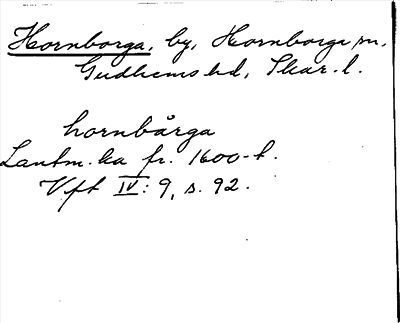 Hornborga, by, Hornborga sn,
Gudhems hd, Skar. l.
hornbårga
Lantm. ka fr. 1600-t.
Vft IV: 9, s. 92.